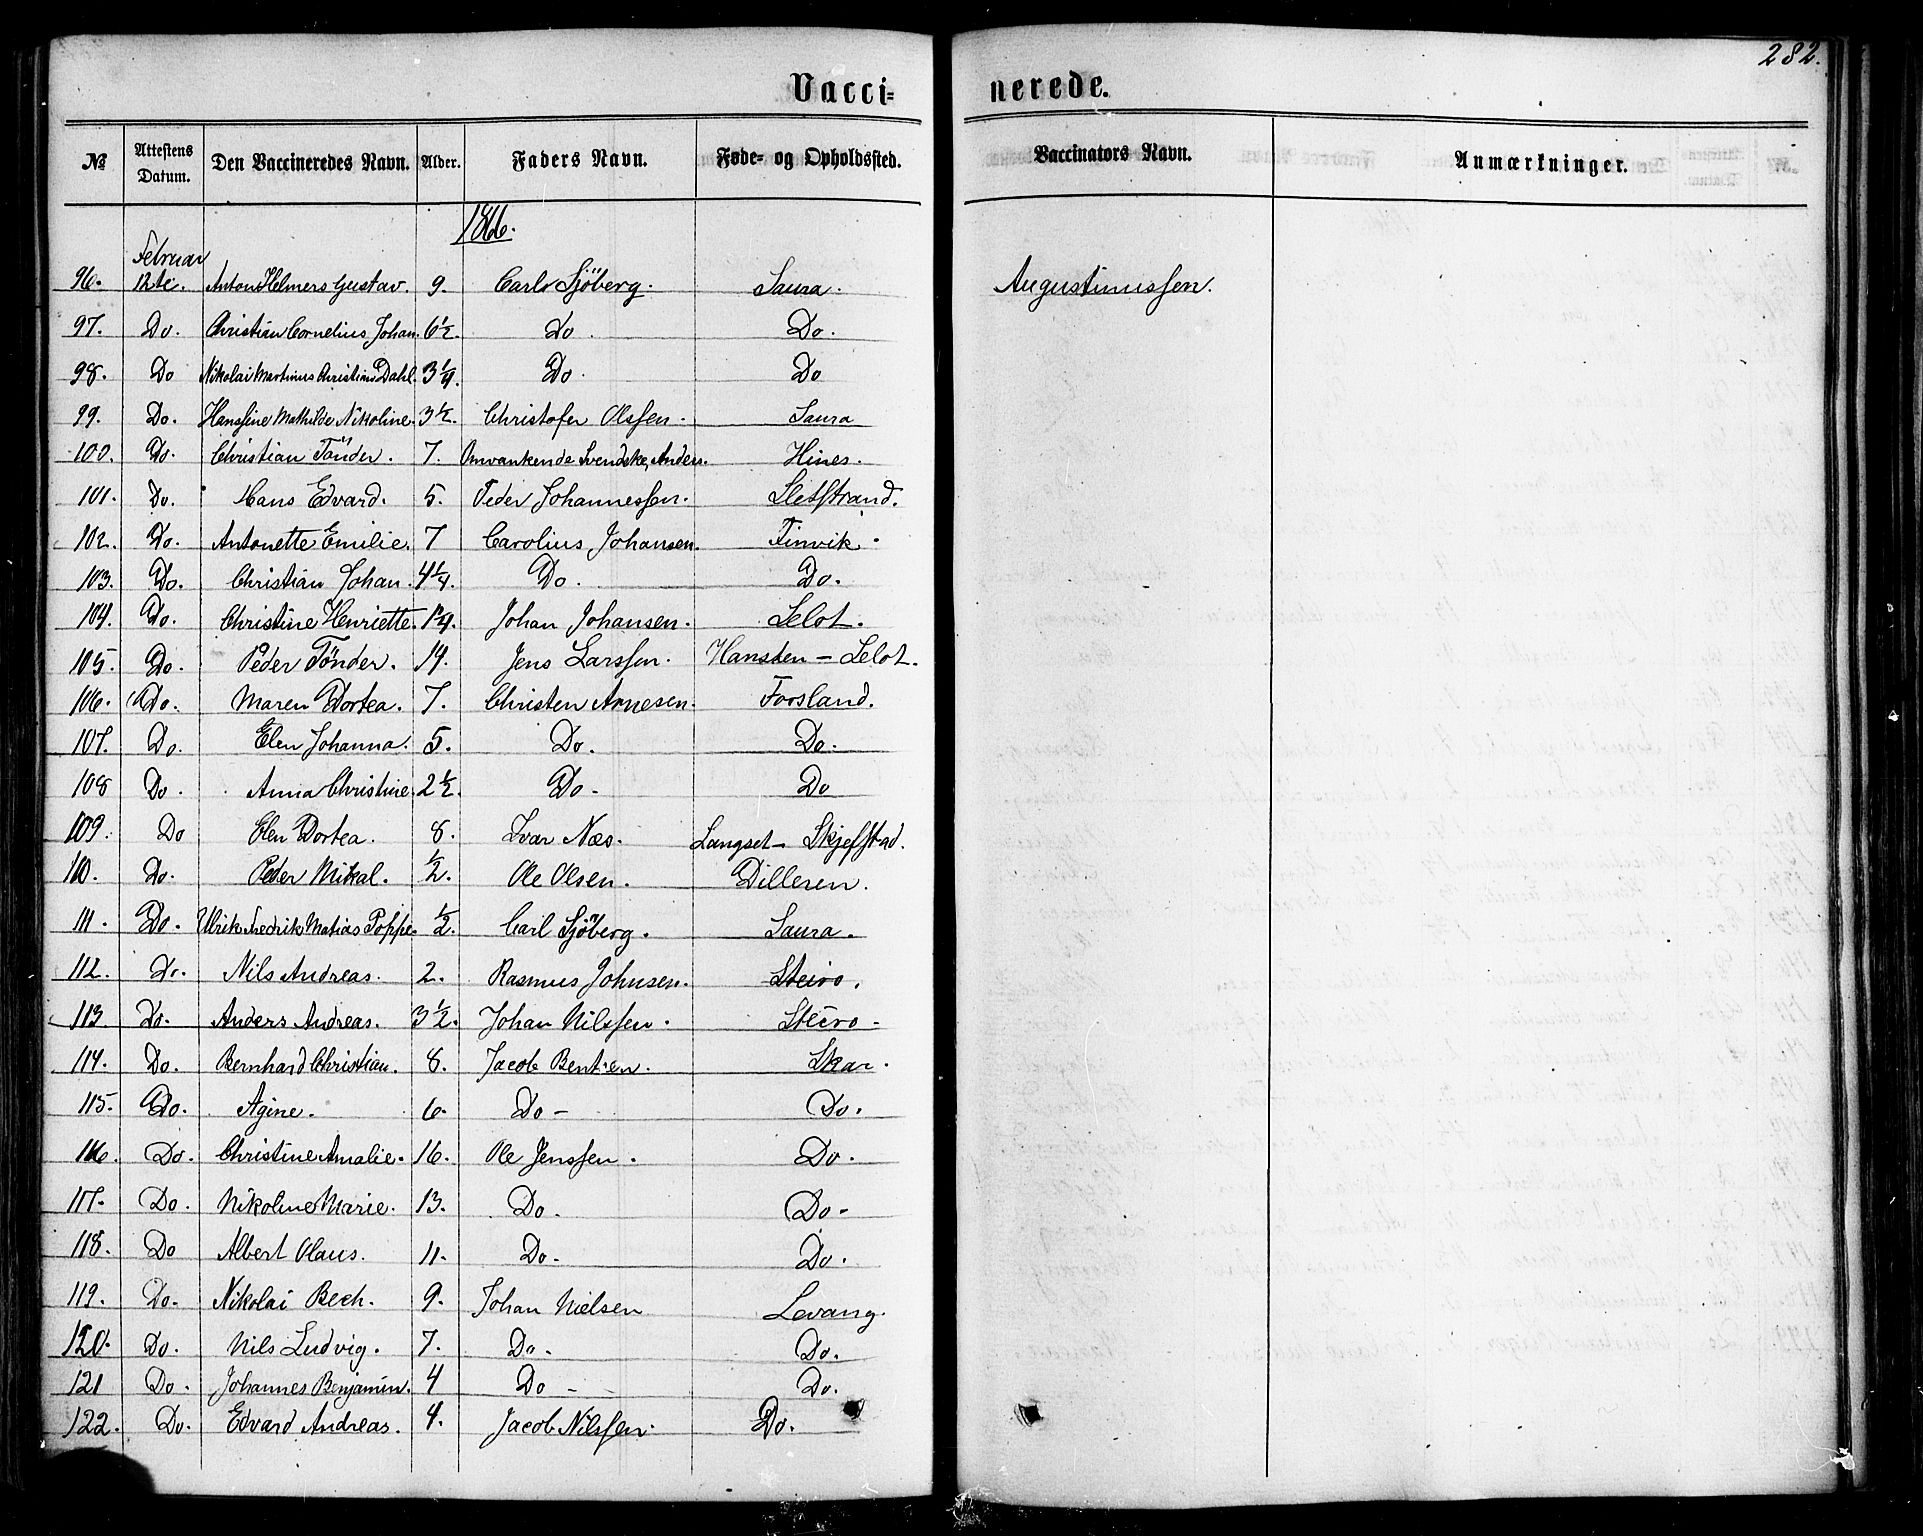 282.
Vacci= nerede.
№ Attestens Datum. Den Vaccineredes Navn. Alder. Faders Navn. Føde- og Opholdssted. Vaccinators Navn. Anmærkninger.
1866.
Februar
96. 12te. Anton Helmers Gustav. 9. Carl Sjöberg. Saura. Augustinussen.
97. Do. Christian Cornelius Johan. 6½. Do. Do.
98. Do Nikolai Martinus Christian Dahl. 3¼. Do. Do
99. Do. Hansine Mathilde Nikoline. 3½. Christofer Olssen. Saura
100. Do. Christian Tönder. 7. Omvankende Svendske, Anders. Hines.
101. Do. Hans Edvard. 5. Peder Johannessen. Sletstrand.
102. Do. Antonette Emilie. 7 Carolius Johansen. Finvik.
103. Do. Christian Johan. 4¼. Do. Do.
104. Do. Christine Henriette. 1¼. Johan Johansen. Selot.
105. Do. Peder Tönder. 14. Jens Larssen. Hansten – Selot.
106. Do. Maren Dortea. 7. Christen Arnesen. Forsland.
107. Do. Elen Johanna. 5. Do. Do.
108 Do. Anna Christine. 2½. Do. Do
109. Do Elen Dortea. 8. Ivar Næs. Langset – Skjefstad.
110. Do. Peder Mikal. ½. Ole Olsen. Dilleren.
111. Do. Ulrik Fredrik Matias Poppe. ½. Carl Sjöberg. Saura.
112. Do. Nils Andreas. 2. Rasmus Johnsen. Steiro.
113. Do. Anders Andreas. 3½. Johan Nilssen. Steiro.
114. Do. Bernhard Christian. 8. Jacob Bentsen. Skar.
115. Do. Agine. 6. Do – Do.
116. Do. Christine Amalie. 16. Ole Jenssen. Do.
117. Do. Nikoline Marie. 13. Do. Do-
118. Do Albert Olaus. 11. Do. Do.
119. Do. Nikolai Bech. 9. Johan Nielsen Levang.
120. Do. Nils Ludvig. 7. Do. Do.
121 Do. Johannes Benjamin. 4 Do – Do.
122. Do. Edvard Andreas. 4. Jacob Nilssen. Do.